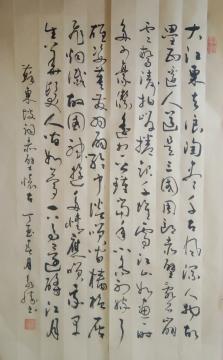 大江東去浪淘盡千古風流人物故
壘西邊人道是三國周郎赤壁亂石崩
雲驚濤拍岸捲起千堆雪江山如畫一時
多少豪傑遙想公瑾當年小喬初嫁了
雄姿英發羽扇綸巾談笑間檣櫓灰
飛煙滅故國神遊多情應笑我早
生華髮人間如夢一尊還酹江月
蘇東坡詞赤壁懷古 丁亥春月